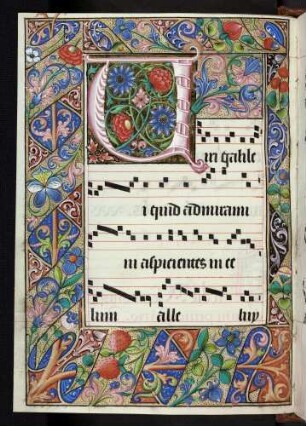 Uiri galile
i quid admirami
ni aspicientes in ce
lum alle luy